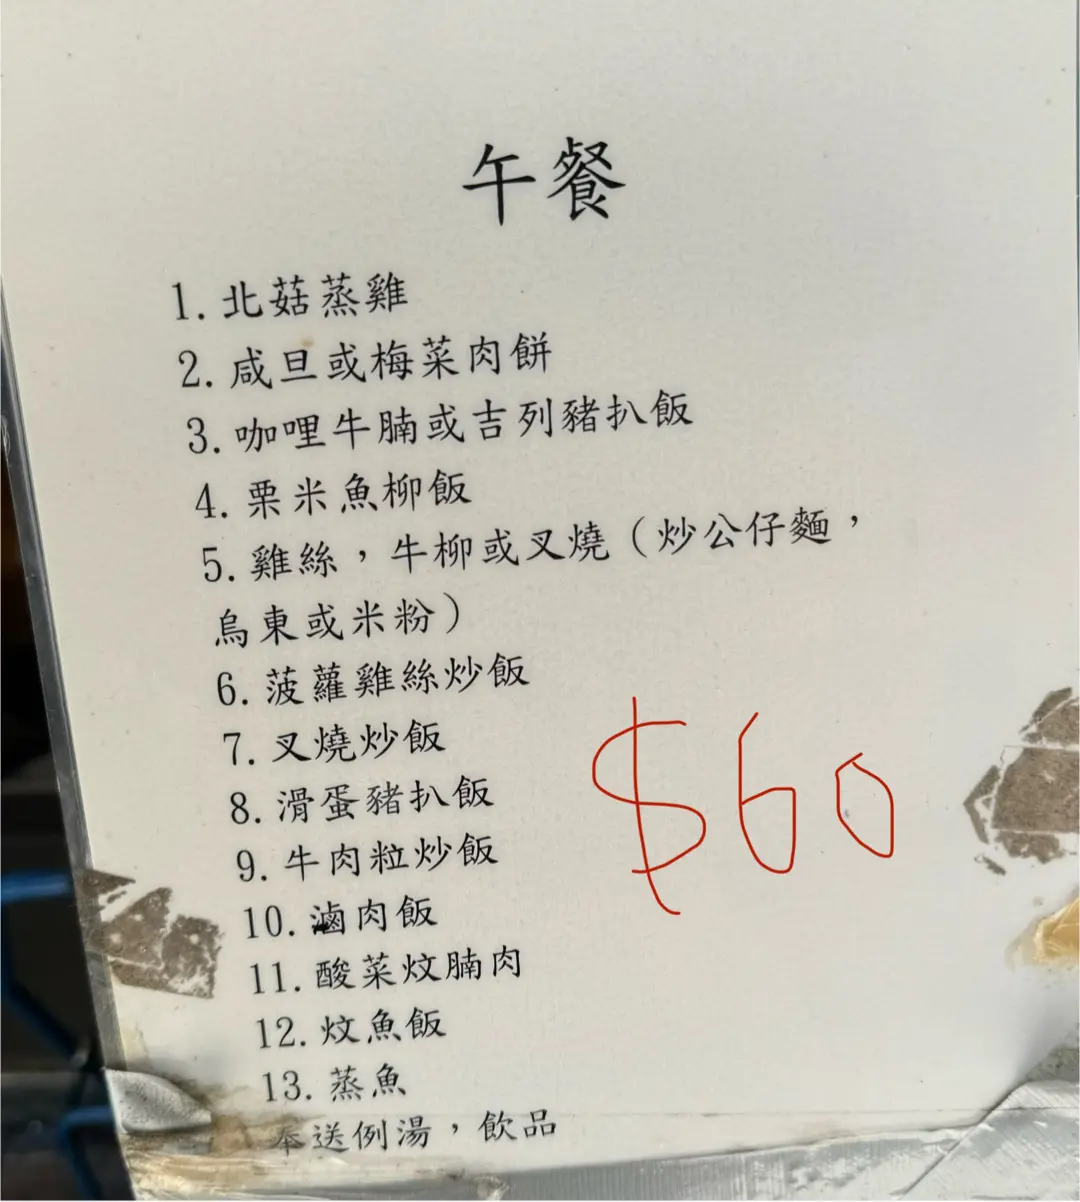 午餐
1. 北菇蒸雞
2. 咸旦或梅菜肉餅
3. 咖哩牛腩或吉列豬扒飯
4. 栗米魚柳飯
5. 雞絲，牛柳或叉燒（炒公仔麵，
烏東或米粉）
6. 菠蘿雞絲炒飯
7. 叉燒炒飯
8. 滑蛋豬扒飯
$60
9. 牛肉粒炒飯
10. 滷肉飯
11. 酸菜炆腩肉
12. 炆魚飯
13. 蒸魚
奉送例湯，飲品